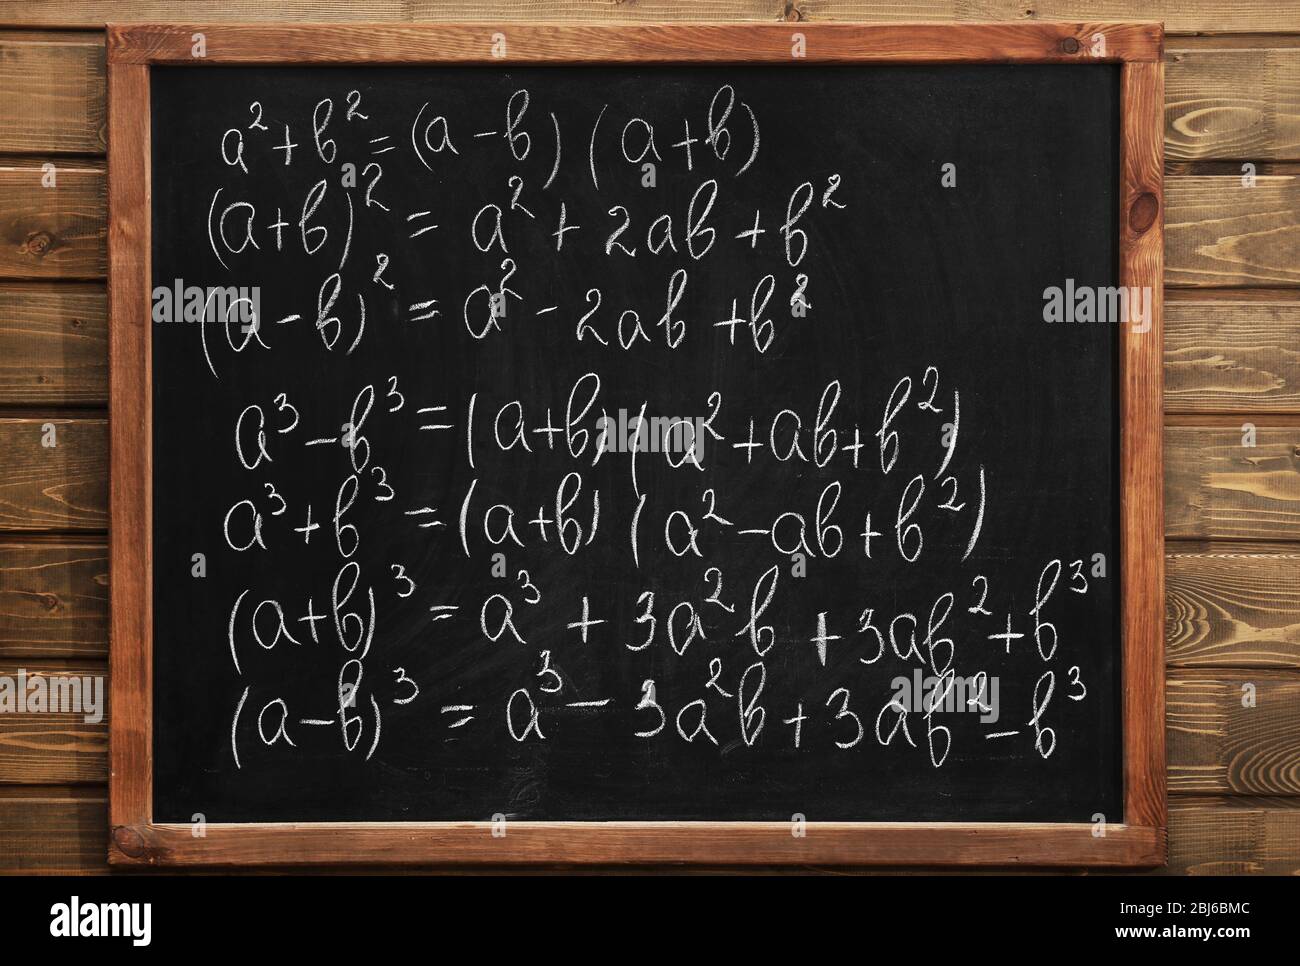 a² + b² = (a - b)(a + b)
(a + b)² = a² + 2ab + b²
(a - b)² = a² - 2ab + b²
a³ - b³ = (a + b)(a² + ab + b²)
a³ + b³ = (a + b)(a² - ab + b²)
(a + b)³ = a³ + 3a²b + 3ab² + b³
(a - b)³ = a³ - 3a²b + 3ab² - b³
alamy
Image ID: 2BJ6BMC
www.alamy.com